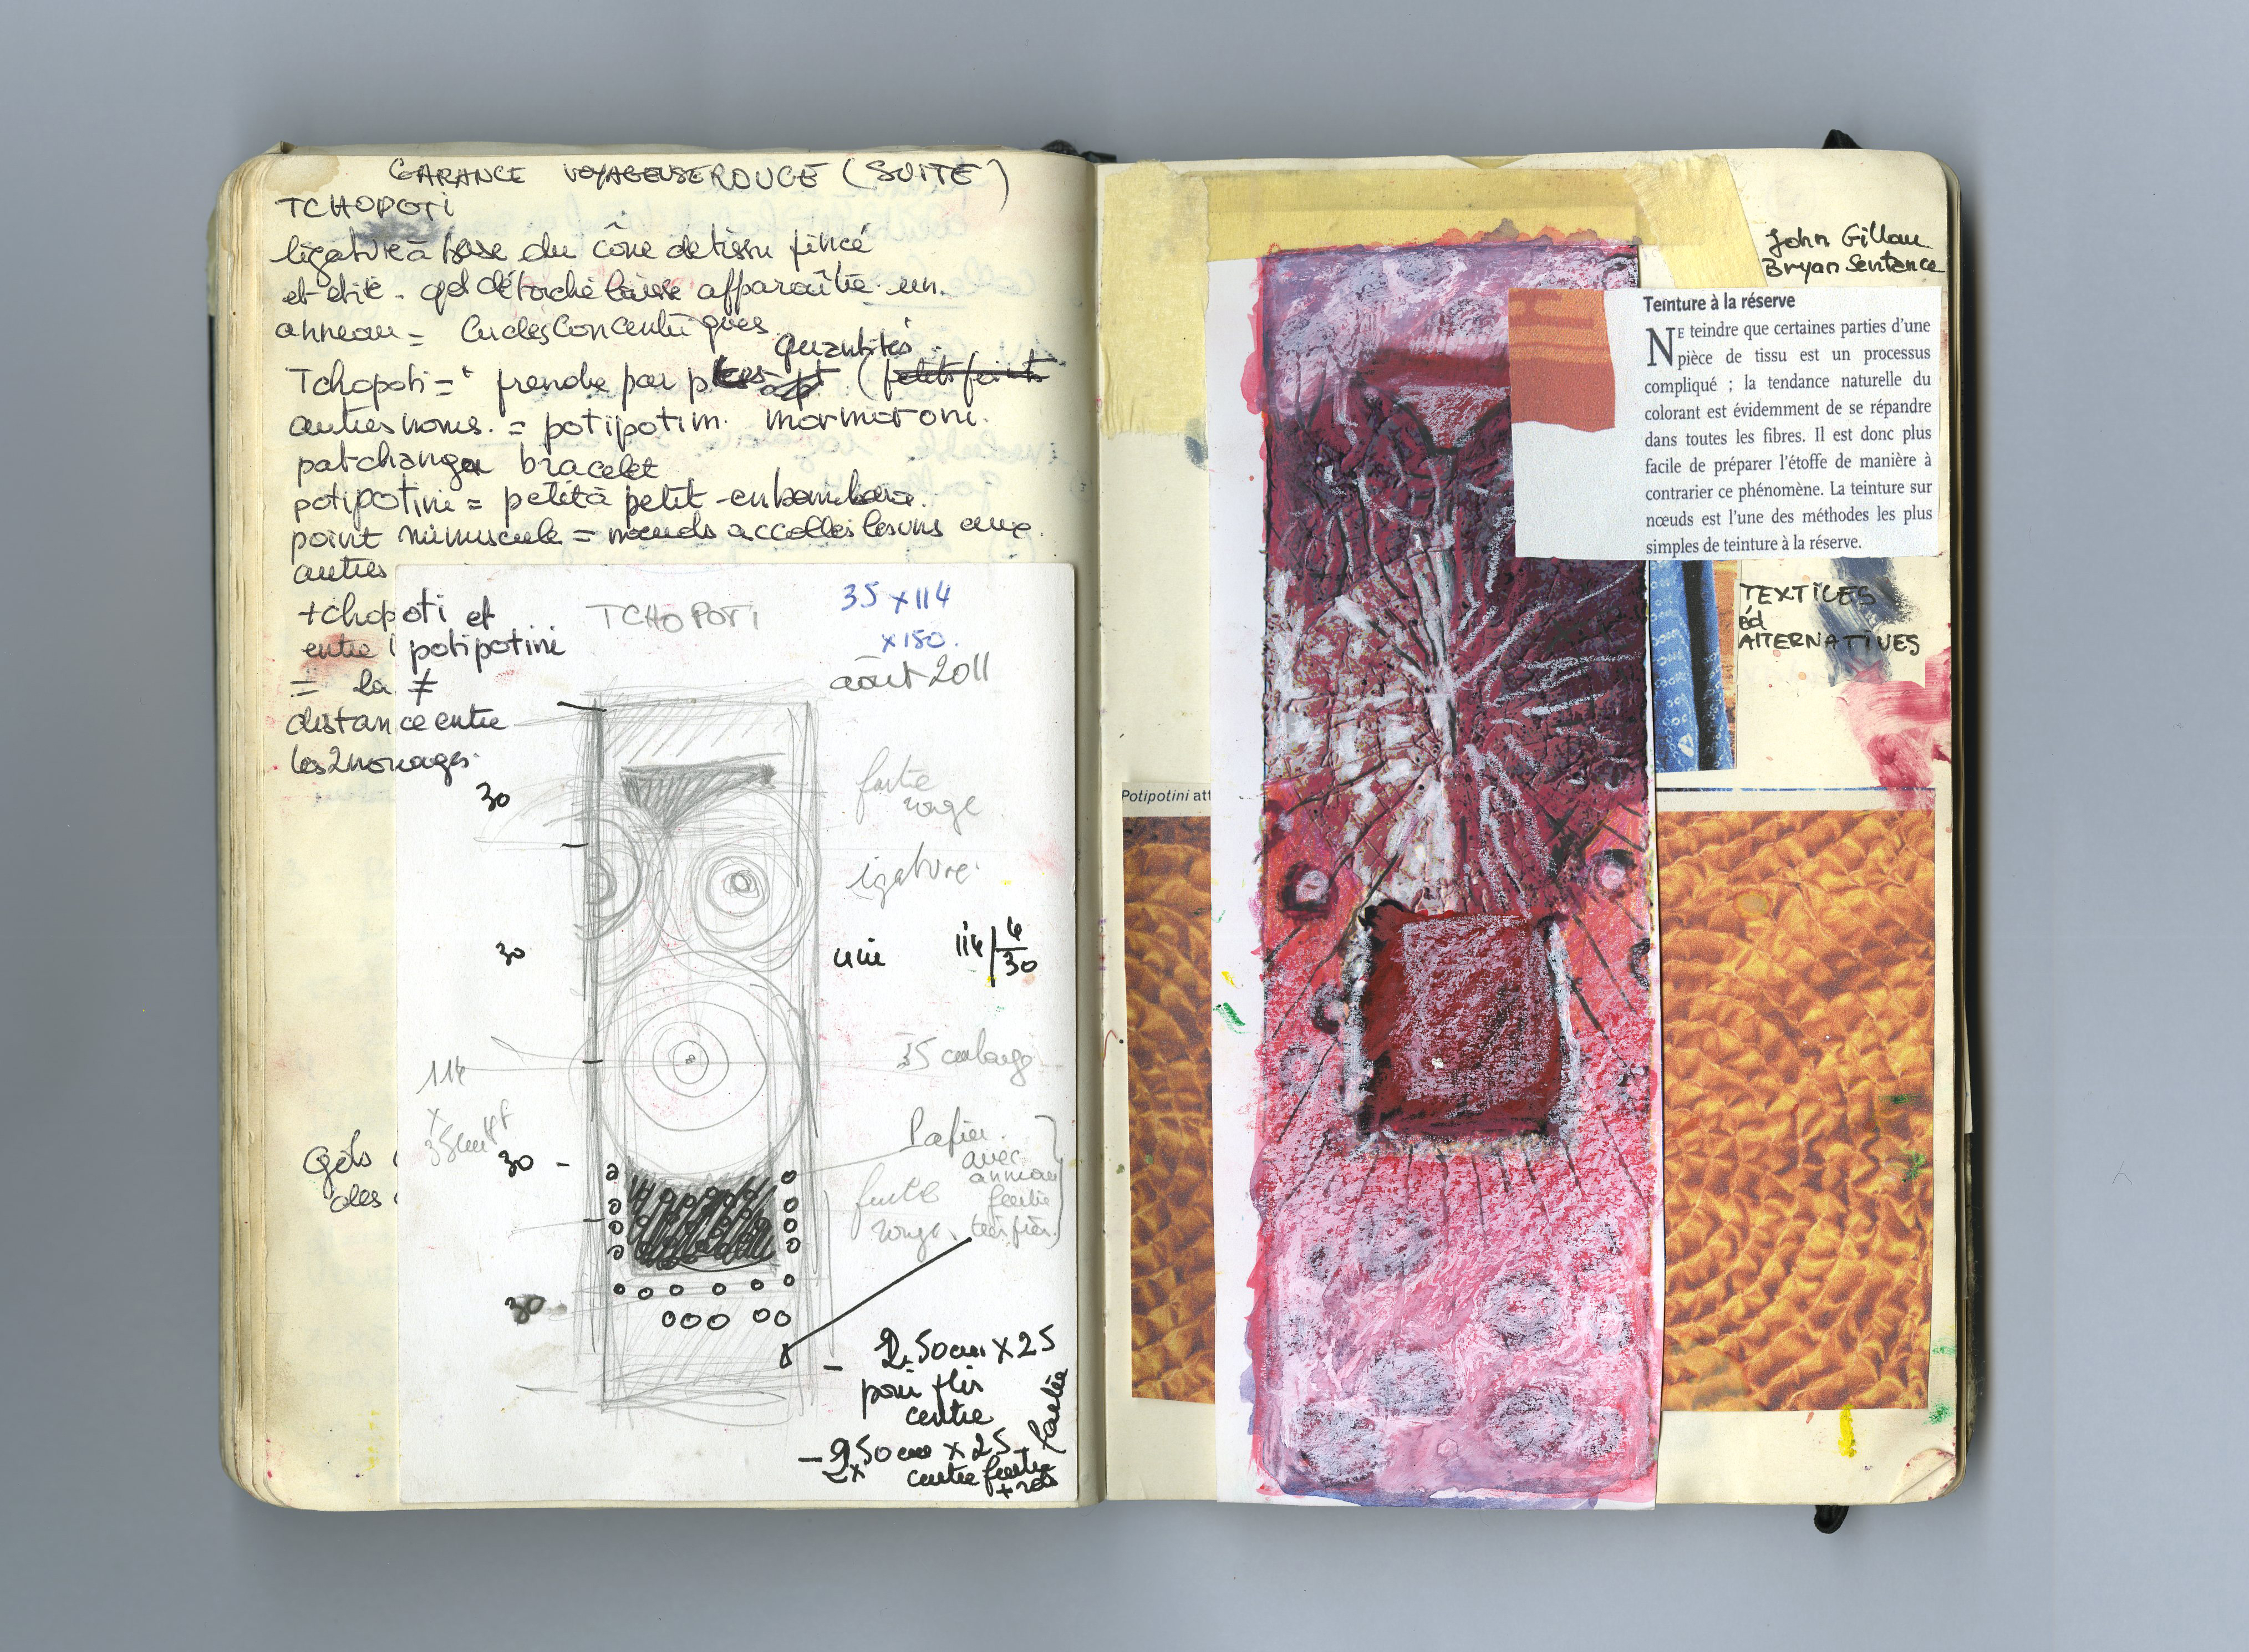 GARANCE VOYAGEUSE ROUGE (SUITE)
TCHOPOTI
ligature à base du cône de tissu pincé
et étiré - qd détaché laisse apparaître un
anneau = Cercles Concentriques
quantités
Tchopoti = prendre par ptes (petits points
autres noms = potipotini mormoroni
patchanga bracelet
potipotini = petit à petit - en bambara
point minuscule = nœuds accollés les uns aux
autres
tchopoti et
entre potipotini
= la ≠
distance entre
les 2 nouages
TCHOPOTI
35 x 114
x 150.
août 2011
30
partie
rouge
ligature
30
uni
114 / 4
30
35 en large
114
x
35 cm
30
Papier
avec
anneau
rouge
Gds
des
30
2.50 cm x 25
pour
centre
- 2.50 cm x 25
2x
centre
John Gillow
Bryan Sentence
Teinture à la réserve
NE teindre que certaines parties d'une
pièce de tissu est un processus
compliqué ; la tendance naturelle du
colorant est évidemment de se répandre
dans toutes les fibres. Il est donc plus
facile de préparer l'étoffe de manière à
contrarier ce phénomène. La teinture sur
nœuds est l'une des méthodes les plus
simples de teinture à la réserve.
TEXTILES
éd
ALTERNATIVES
Potipotini att